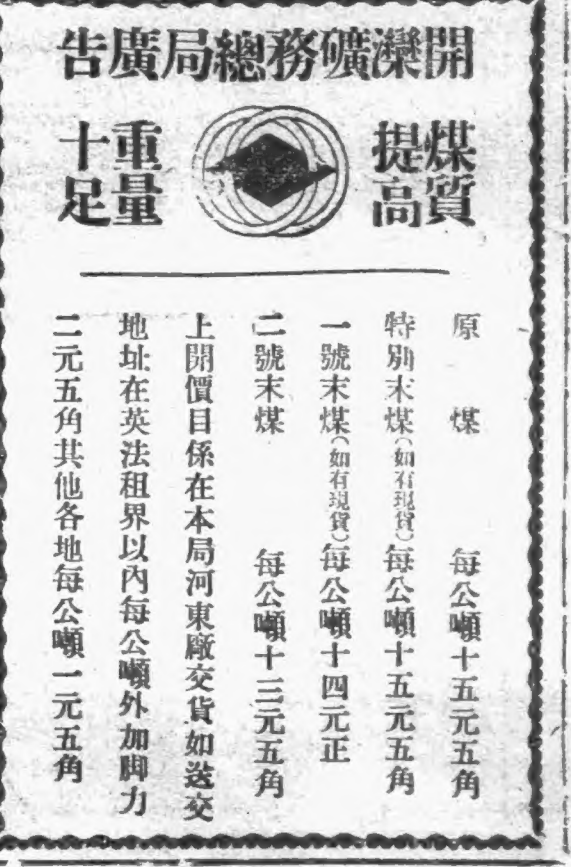 開灤礦務總局廣告
煤質
提高
重量
十足
原煤 每公噸十五元五角
特別末煤(如有現貨)每公噸十五元五角
一號末煤(如有現貨)每公噸十四元正
二號末煤 每公噸十三元五角
上開價目係在本局河東廠交貨如送交
地址在英法租界以內每公噸外加脚力
二元五角其他各地每公噸一元五角